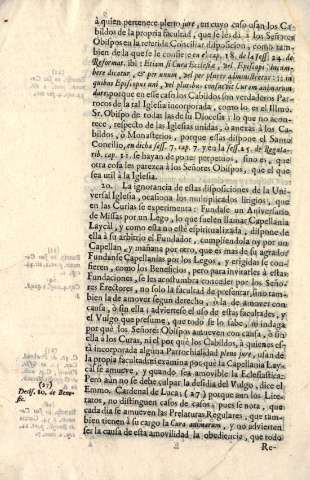 à quien pertenece pleno jure, en cuyo caso usan los Ca-
bildos de la propria facultad, que se les dà à los Señores
Obispos en la referida Conciliar disposicion, como tam-
bien de la que se le consiente en el cap. 18. de la sess. 24. de
Reformat. ibi: Etiam si Cura Ecclesiæ, vel Episcopo incum-
bere dicatur, & per unum, vel per plures administretur::: in
quibus Episcopus uni, vel pluribus consuevit Curam animarum
dare; porque en esse caso los Cabildos son verdaderos Par-
rocos de la tal Iglesia incorporada, como lo es el Illmo.
Sr. Obispo de todas las de su Diocesa: lo que no acon-
tece, respecto de las Iglesias unidas, ò anexas à los Ca-
bildos, ò Monasterios, porque estas dispone el Santo
Concilio, en dicha sess. 7. cap. 7. y en la sess. 25. de Regula-
rib. cap. 11. se hayan de poner perpetuos, sino es, que
otra cosa les parezca à los Señores Obispos, que el que
sea util à la Iglesia.
20. La ignorancia de estas disposiciones de la Uni-
versal Iglesia, ocasiona los multiplicados litigios, que
en las Curias se experimenta: Fundase un Aniversario
de Missas por un Lego, lo que suelen llamar Capellania
Laycàl, y como esta no estè espiritualizada, dispone de
ella à su arbitrio el Fundador, cumpliendola oy por un
Capellan, y mañana por otro, que es mas de su agrado:
Fundanse Capellanias por los Legos, y erigidas se con-
fieren, como los Beneficios, pero para invitarles à estas
Fundaciones, se les acostumbra conceder por los Seño-
res Erectores, no solo la facultad de presentar, sino tam-
bien la de amover segun derecho, ò la de amover con
causa, ò sin ella; advierte so el uso de estas facultades, y
el Vulgo que presume, que todo se lo sabe, ni indaga
por què los Señores Obispos amueven con causa, ò sin
ella à los Curas, ni el por què los Cabildos, à quienes es-
tà incorporada alguna Parrochialidad pleno jure, usan de
la propria facultad; ni examina por què la Capellania Lay-
cal se amueve, y quando sea amovible la Eclesiastica:
Però aun no se debe culpar la desidia del Vulgo, dice el
Emmo. Cardenal de Luca; (27) porque aun los Lite-
ratos, no distinguen casos de casos, pues se nota, que
cada dia se amueven las Prelaturas Regulares, que tam-
bien tienen à su cargo la Cura animarum, y no advierten
ser la causa de esta amovilidad la obediencia, que todo
Re-
(27)
Decis. 10. de Bene-
fic.